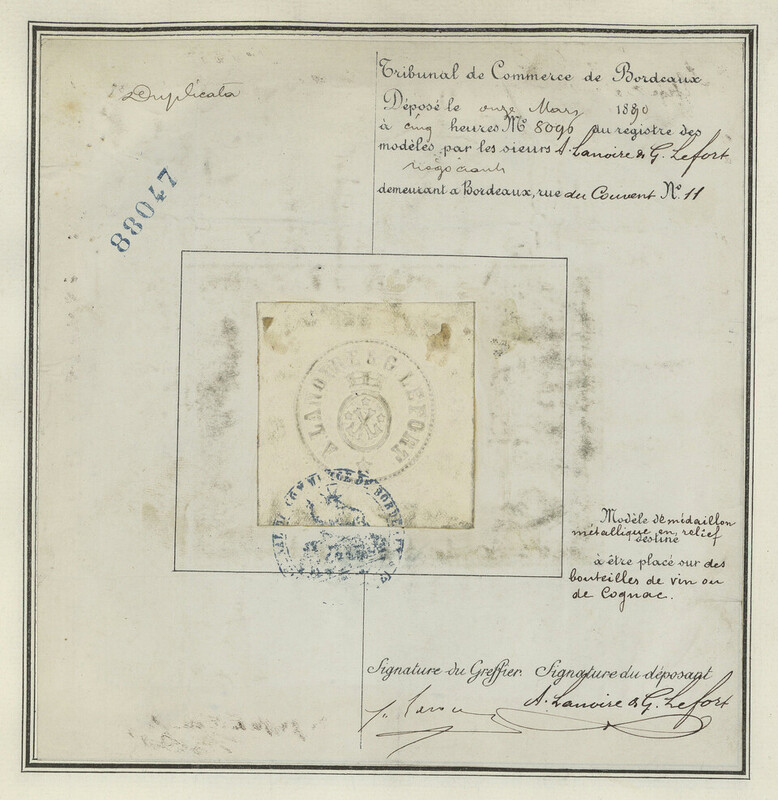 Duplicata
88047
Tribunal de Commerce de Bordeaux
Déposé le onze Mars 1890
à cinq heures Nº 8096 au registre des
modèles par les sieurs A. Lanoire & G. Lefort
négociants
demeurant à Bordeaux, rue du Couvent Nº 11
A LANOIRE & G LEFORT
COMMERCE DE BORDEAUX
Modèle de médaillon
métallique en relief
destiné
à être placé sur des
bouteilles de vin ou
de Cognac.
Signature du Greffier. Signature du déposant
A. Lanoire & G. Lefort